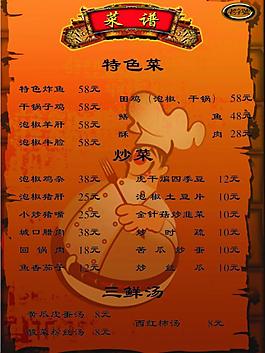 菜谱
特色菜
特色炸鱼 58元
干锅子鸡 58元
泡椒羊肝 58元
泡椒牛脸 58元
田鸡（泡椒、干锅） 58元
鱼 48元
酥肉 28元
炒菜
泡椒鸡杂 38元
泡椒猪肝 25元
小炒猪嘴 25元
城口腊肉 38元
回锅肉 18元
鱼香茄子 12元
虎干煸四季豆 12元
泡椒土豆片 10元
金针菇炒韭菜 10元
炒时蔬 10元
苦瓜炒蛋 10元
炒丝瓜 10元
三鲜汤
黄瓜皮蛋汤 8元
酸菜粉丝汤 8元
西红柿汤 8元